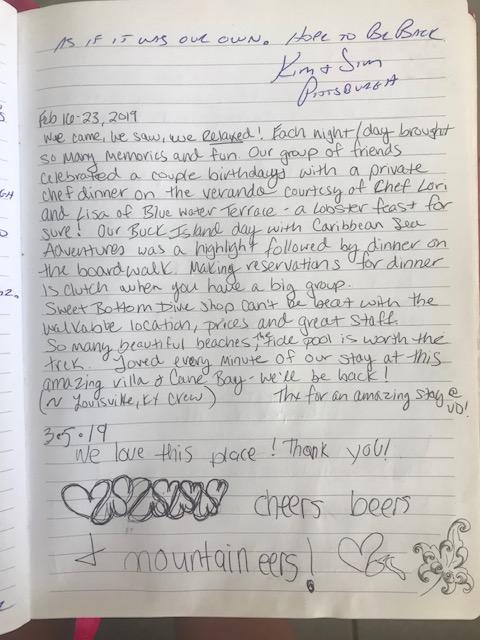 AS IF IT WAS OUR OWN. HOPE TO BE BACK
Kim &
PITTSBURGH
Feb 16-23, 2019
We came, we saw, we Relaxed! Each night/day brought
so many memories and fun. Our group of friends
celebrated a couple birthdays with a private
chef dinner on the veranda courtesy of Chef Lori
and Lisa of Blue Water Terrace - a lobster feast for
sure! Our Buck Island day with Caribbean Sea
Adventures was a highlight followed by dinner on
the boardwalk. Making reservations for dinner
is clutch when you have a big group.
Sweet Bottom Dive shop can't be beat with the
walkable location, prices and great staff.
So many beautiful beaches, the tide pool is worth the
trek. Loved every minute of our stay at this
amazing villa & Cane Bay - we'll be back!
(~ Louisville, KY Crew) Thx for an amazing stay @
VD!
3.5.19
We love this place! Thank you!
cheers beers
+ mountaineers!